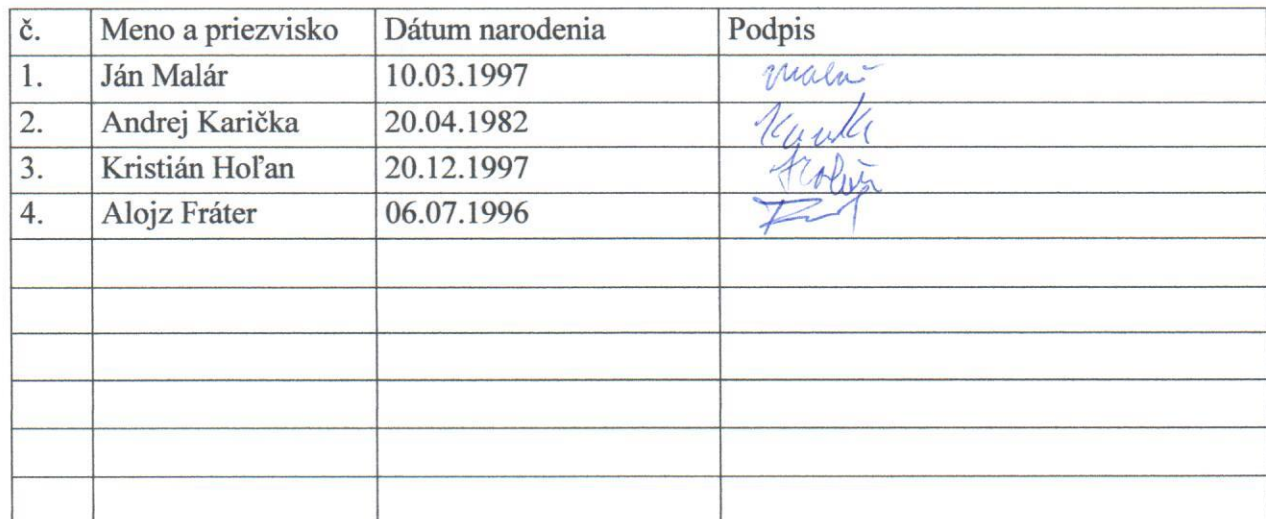 č. Meno a priezvisko Dátum narodenia Podpis
1. Ján Malár 10.03.1997 Malár
2. Andrej Karička 20.04.1982
3. Kristián Hoľan 20.12.1997 Hoľan
4. Alojz Fráter 06.07.1996